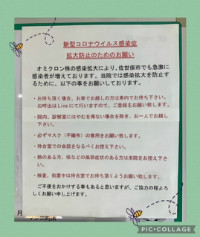 新型コロナウイルス感染症
拡大防止のためのお願い
オミクロン株の感染拡大により、佐世保市でも急激に
感染者が増えております。当院では感染拡大を防止す
るために、以下の事をお願いしております。
・お待ち頂く場合、お車でお越しの方は車内でお待ち下さい。
お呼出はLineにて行いますので、ご登録をお願い致します。
・院内、診察室にはやむを得ない場合を除き、お一人でお越し
下さい。
・必ずマスク(不織布)の着用をお願い致します。
・待合室での会話をなるべくお控え下さい。
・熱のある方、咳などの風邪症状のある方は来院をお控え下さ
い。
・検査、処置中は待合室でお待ち頂くようお願い致します。
ご不便をおかけする事もあると思いますが、ご協力の程よろ
しくお願い申し上げます。
PIC•COLLAGE